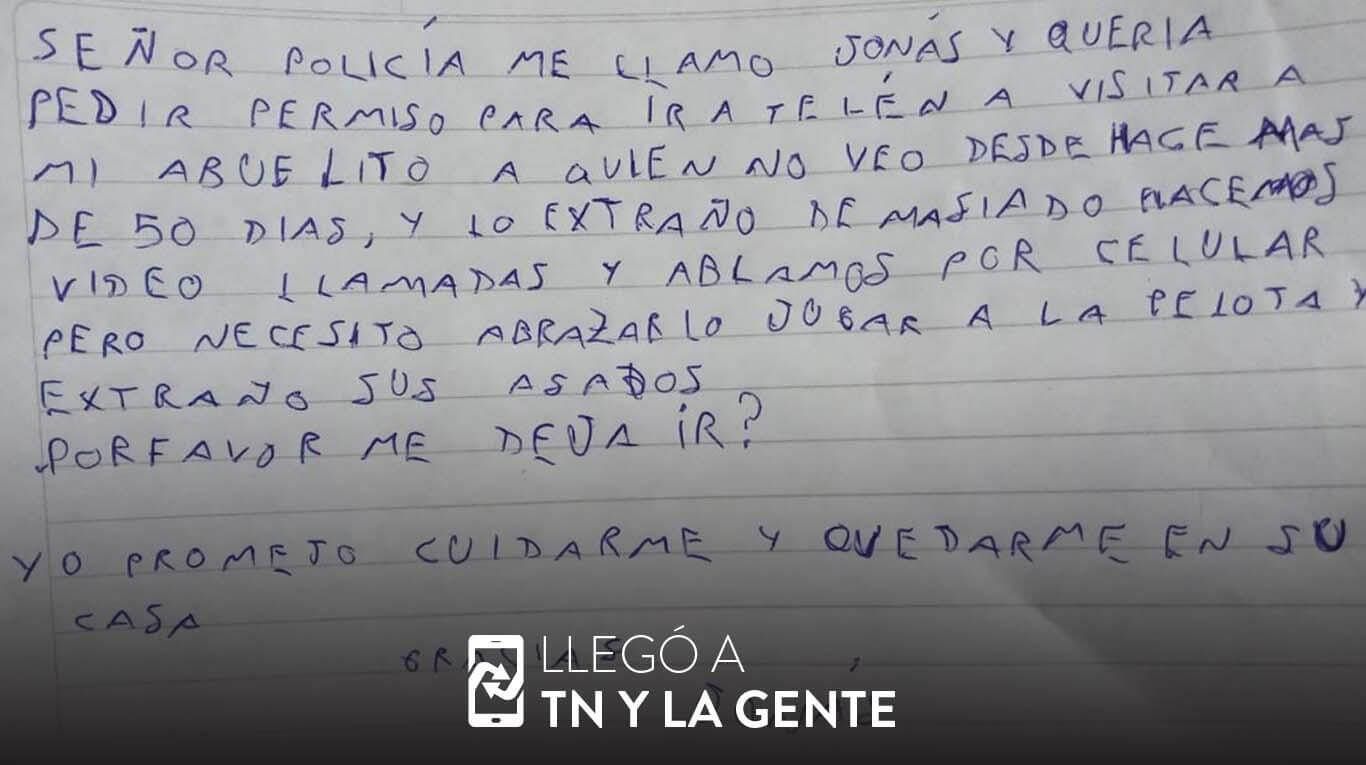 SEÑOR POLICÍA ME LLAMO JONÁS Y QUERIA
PEDIR PERMISO PARA ÍR A TELÉN A VISITAR A
MI ABUELITO A QUIEN NO VEO DESDE HACE MAS
DE 50 DIAS, Y LO EXTRAÑO DEMASIADO HACEMOS
VIDEO LLAMADAS Y ABLAMOS POR CELULAR
PERO NECESITO ABRAZARLO JUGAR A LA PELOTA Y
EXTRAÑO SUS ASADOS
PORFAVOR ME DEJA ÍR?
YO PROMETO CUIDARME Y QUEDARME EN SU
CASA
GRACIAS
LLEGÓ A
TN Y LA GENTE